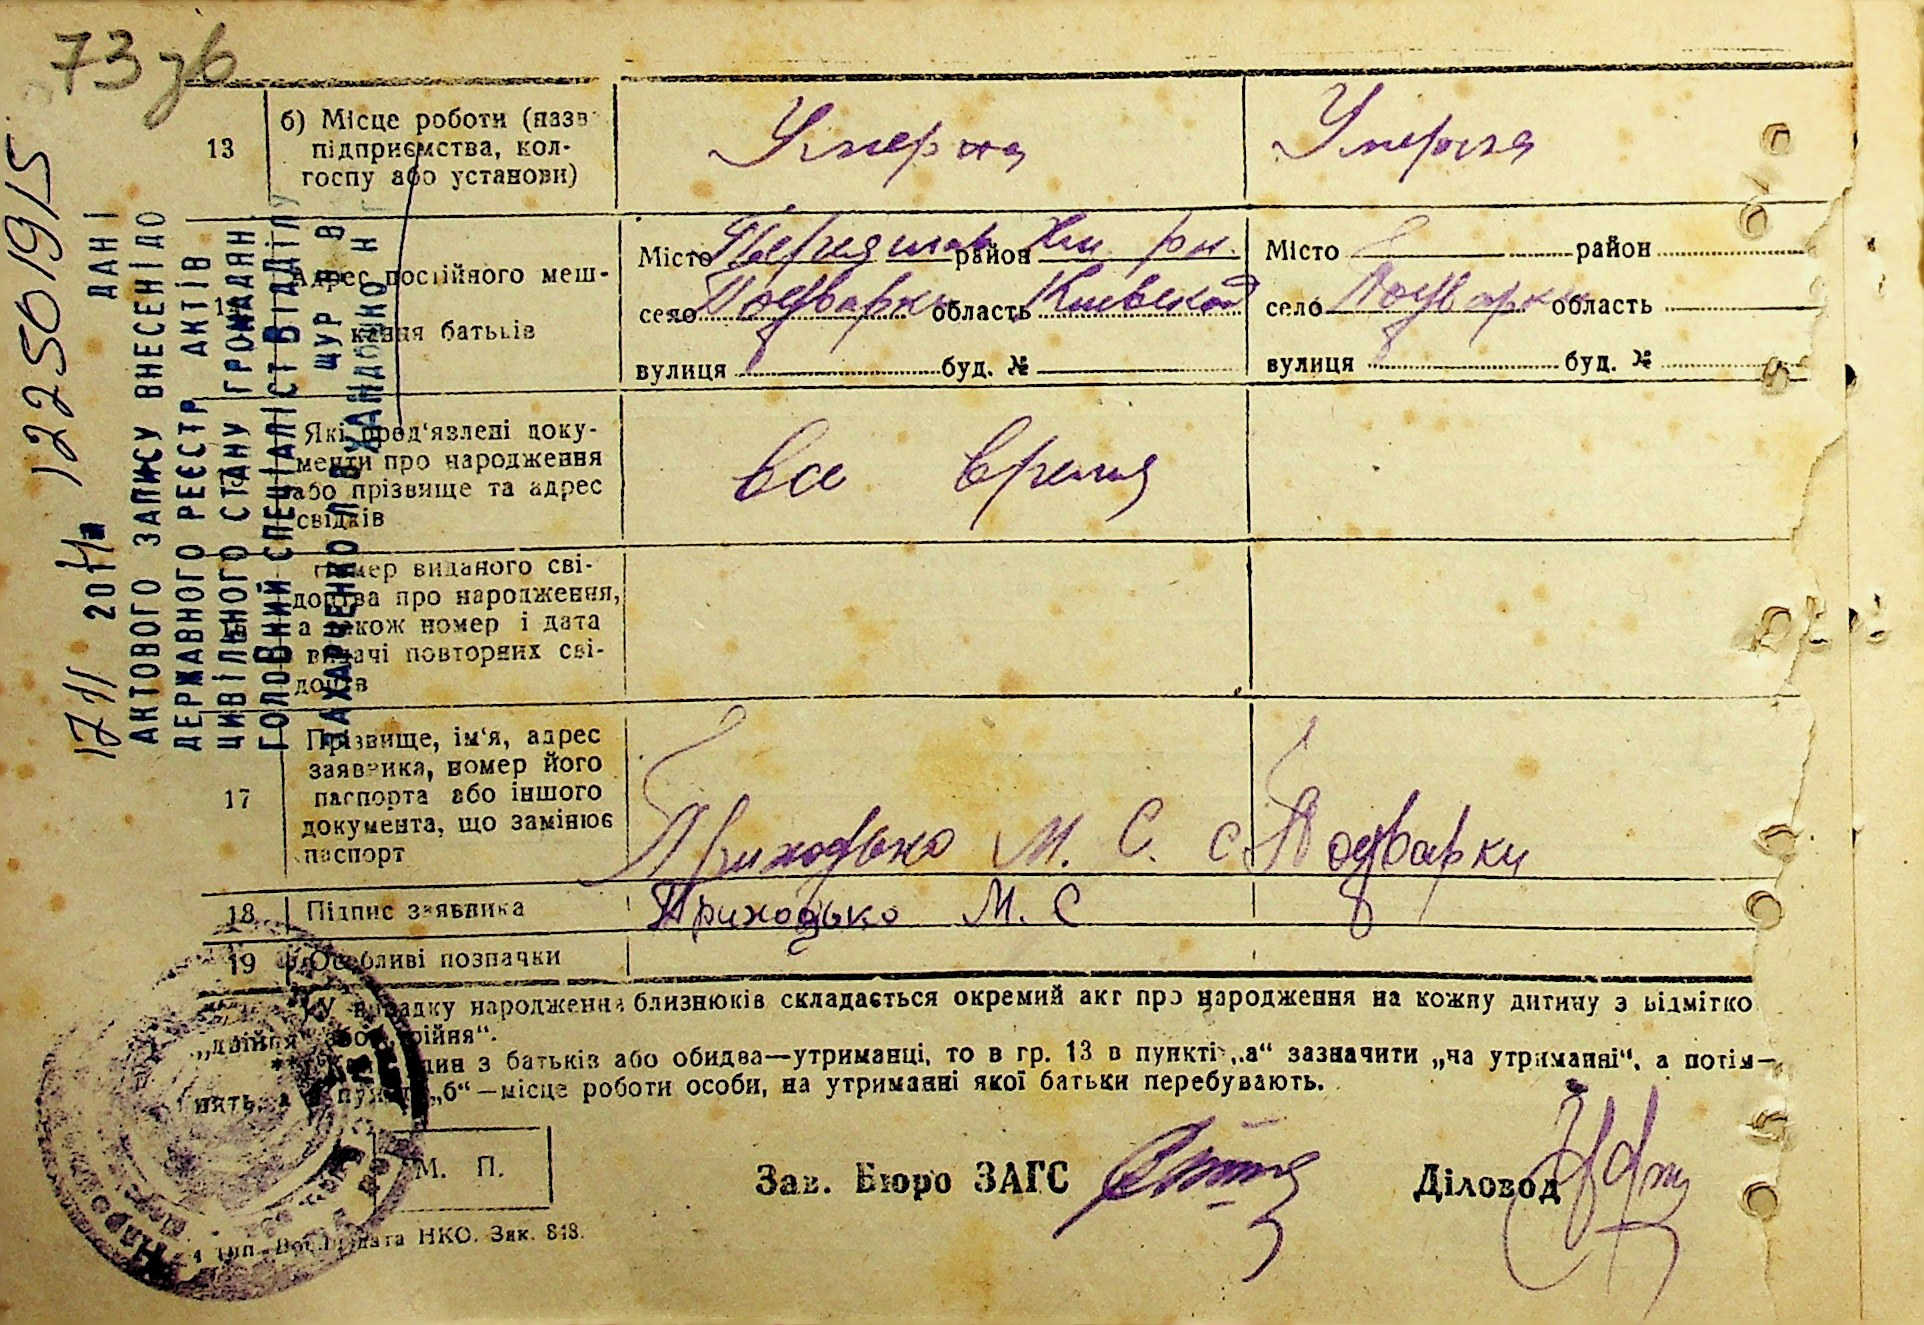 73 зв
12250195
17 11 2014 ДАНІ
АКТОВОГО ЗАПИСУ ВНЕСЕНІ ДО
ДЕРЖАВНОГО РЕЄСТР АКТІВ
ЦИВІЛЬНОГО СТАНУ ГРОМАДЯН
ГОЛОВНИЙ СПЕЦІАЛІСТ ВІДДІЛУ
13
б) Місце роботи (назв
підприємства, кол-
госпу або установи)
Умерла
Умерла
Адрес постійного меш-
кання батьків
Місто Переяслав район Хм рн.
село Подварки область Киевской
вулиця буд. №
Місто район
село Подварки область
вулиця буд. №
Які пред'явлені доку-
менти про народження
або прізвище та адрес
свідків
все время
Номер виданого сві-
доцтва про народження,
а також номер і дата
видачі повторних сві-
доцтв
17
Прізвище, ім'я, адрес
заявника, номер його
паспорта або іншого
документа, що замінює
паспорт
Приходько М. С. с Подварки
18 Підпис заявника
Приходько М. С
19 Особливі позначки
*) У випадку народження близнюків складається окремий акт про народження на кожну дитину з відмітко
„двійня“ або „трійня“.
один з батьків або обидва—утриманці, то в гр. 13 в пункті „а“ зазначити „на утриманні“, а потім—
пункті „б“—місце роботи особи, на утриманні якої батьки перебувають.
М. П.
Зав. Бюро ЗАГС
Діловод
НКО. Зак. 848.